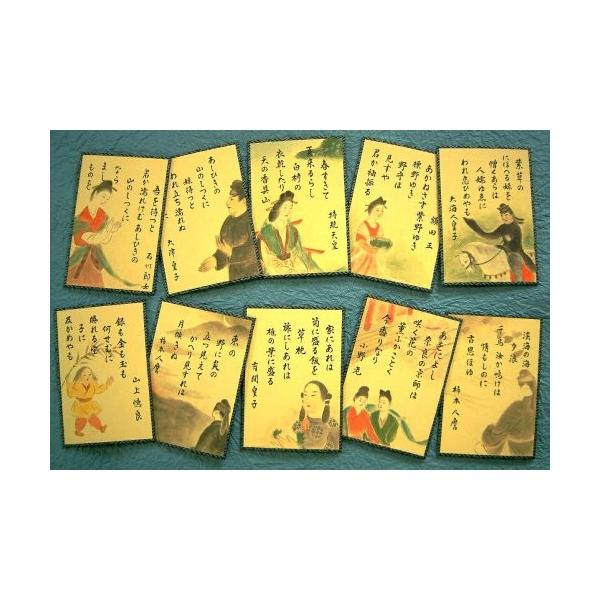 紫草の
にほへる妹を
憎くあらば
人嬬ゆゑに
われ恋ひめやも
大海人皇子
あかねさす 紫野ゆき
標野ゆき
野守は
見ずや
君が袖振る
額田王
春すぎて
夏来るらし
白栲の
衣乾したり
天の香具山
持統天皇
あしひきの
山のしづくに
妹待つと
われ立ち濡れぬ
大津皇子
吾を待つと
君が濡れけむあしひきの
山のしづくに
ならま
し
ものを
石川郎女
淡海の海
夕浪
千鳥 汝が鳴けば
情もしのに
古思ほゆ
柿本人麿
あをによし
奈良の京師は
咲く花の
薫ふがごとく
今盛りなり
小野老
家にあれば
笥に盛る飯を
草枕
旅にしあれば
椎の葉に盛る
有間皇子
東の
野に炎の
立つ見えて
かへり見すれば
月傾きぬ
柿本人麿
銀も金も玉も
何せむに
勝れる宝
子に
及かめやも
山上憶良